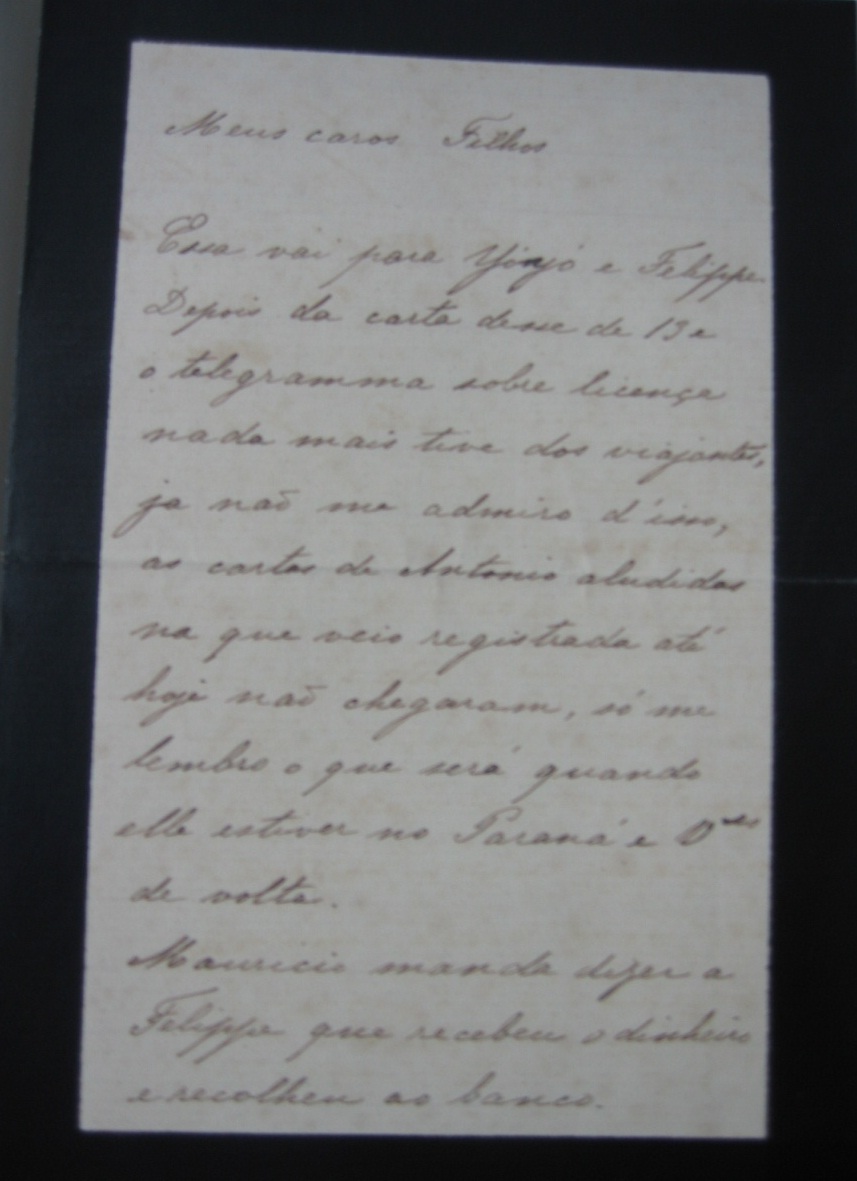 Meus caros Filhos
Essa vai para Yoyó e Felippe.
Depois da carta desse de 13 e
o telegramma sobre licença
nada mais tive dos viajantes,
ja naõ me admiro d'isso,
as cartas de Antonio aludidas
na que veio registrada até
hoje naõ chegaram, só me
lembro o que será quando
elle estiver no Paraná e V.ces
de volta.
Mauricio manda dizer a
Felippe que recebeu o dinheiro
e recolheu ao banco.